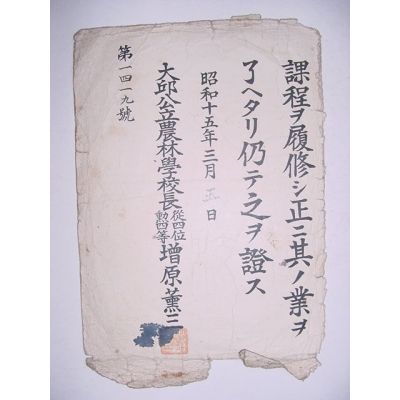 課程ヲ履修シ正ニ其ノ業ヲ
了ヘタリ仍テ之ヲ證ス
昭和十五年三月五日
大邱公立農林學校長從四位勳四等增原薰三
第一四一九號